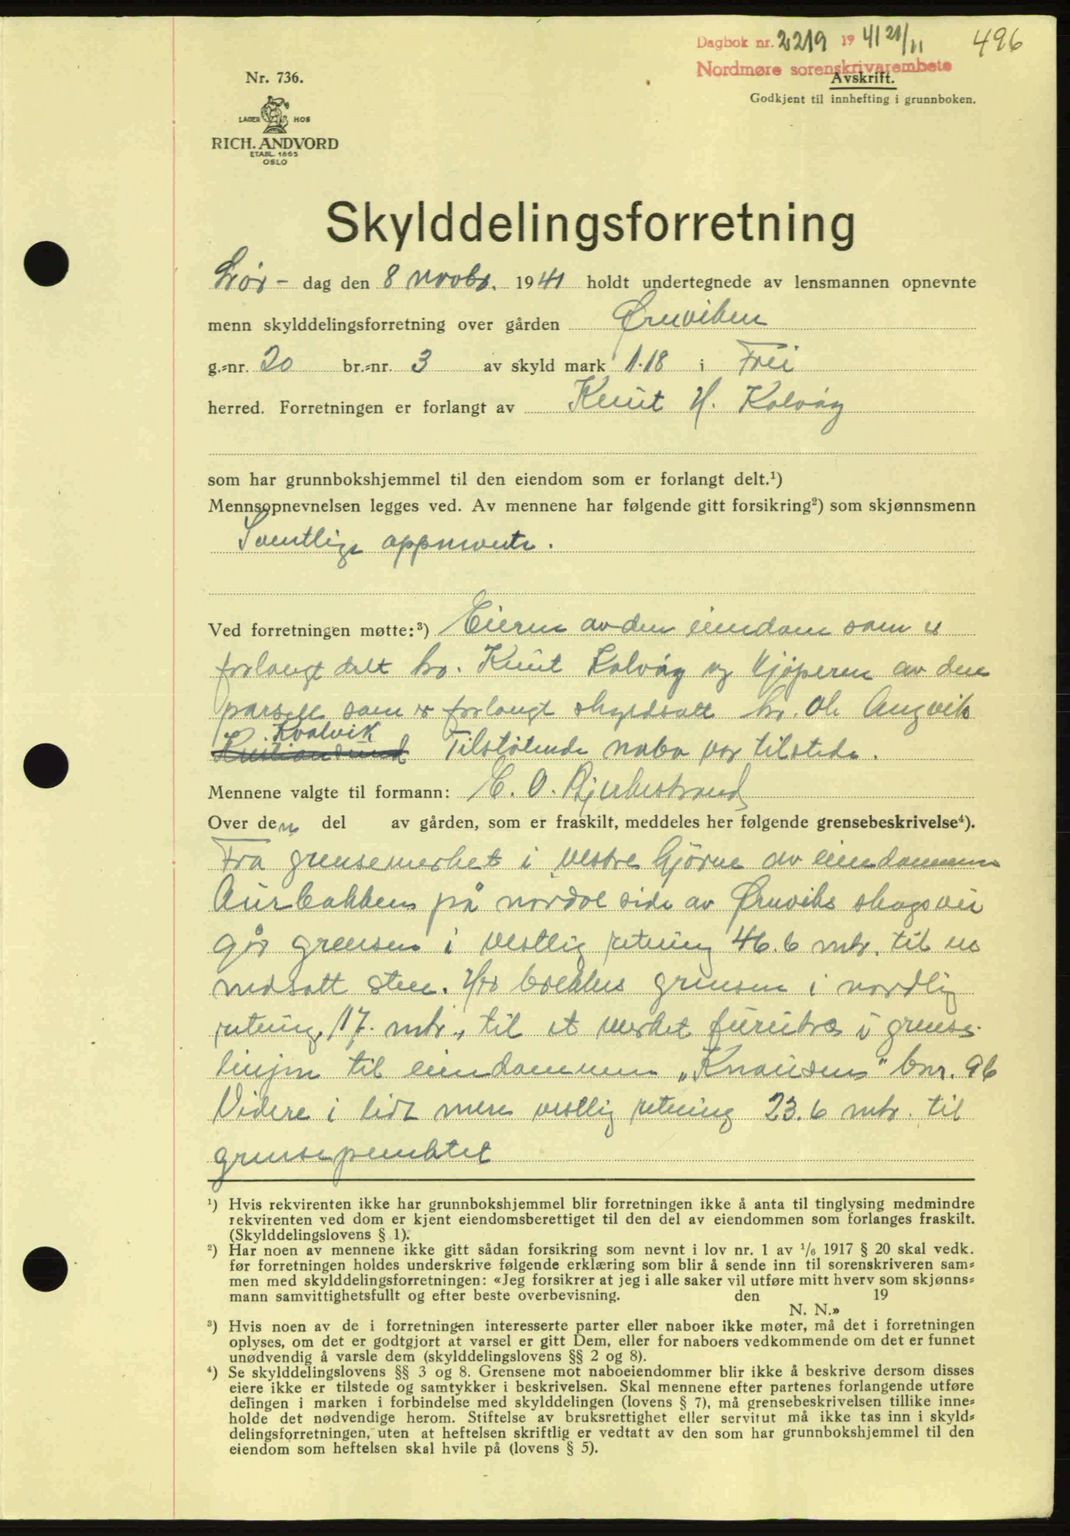 Dagbok nr. 2219 19 41 21/11 496
Nordmøre sorenskriverembete
Avskrift.
Godkjent til innhefting i grunnboken.
Nr. 736.
LAGER HOS
RICH. ANDVORD
ETABL. 1865
OSLO
Skylddelingsforretning
Lør- dag den 8 novbr. 1941 holdt undertegnede av lensmannen opnevnte
menn skylddelingsforretning over gården Ørnviken
g.=nr. 20 br.=nr. 3 av skyld mark 1.18 i Frei
herred. Forretningen er forlangt av Knut H. Kolvåg
som har grunnbokshjemmel til den eiendom som er forlangt delt.¹)
Mennsopnevnelsen legges ved. Av mennene har følgende gitt forsikring²) som skjønnsmenn
Samtlige oppnevnte.
Ved forretningen møtte:³) Eieren av den eiendom som er
forlangt delt hr. Knut Kolvåg og kjøperen av den
parsell som er forlangt skyldsatt hr. Ole Angvik
Kvalvik
Kristiansund Tilstøtende nabo var tilstede.
Mennene valgte til formann: E. O. Bjerkestrand
Over den del av gården, som er fraskilt, meddeles her følgende grensebeskrivelse⁴).
Fra grensemerket i vestre hjørne av eiendommen
Aurbakken på nordre side av Ørnviks skogsvei
går grensen i vestlig retning 46.6 mtr. til en
nedsatt sten. Her brekkes grensen i nordlig
retning, 17. mtr., til et merket furutre i grense-
linjen til eiendommen „Knausen" bnr. 96
Videre i lidt mere vestlig retning 23.6 mtr. til
grensepunktet
¹) Hvis rekvirenten ikke har grunnbokshjemmel blir forretningen ikke å anta til tinglysing medmindre
rekvirenten ved dom er kjent eiendomsberettiget til den del av eiendommen som forlanges fraskilt.
(Skylddelingslovens § 1).
²) Har noen av mennene ikke gitt sådan forsikring som nevnt i lov nr. 1 av 1/6 1917 § 20 skal vedk.
før forretningen holdes underskrive følgende erklæring som blir å sende inn til sorenskriveren sam=
men med skylddelingsforretningen: «Jeg forsikrer at jeg i alle saker vil utføre mitt hverv som skjønns=
mann samvittighetsfullt og efter beste overbevisning. den 19
N. N.»
³) Hvis noen av de i forretningen interesserte parter eller naboer ikke møter, må det i forretningen
oplyses, om det er godtgjort at varsel er gitt Dem, eller for naboers vedkommende om det er funnet
unødvendig å varsle dem (skylddelingslovens §§ 2 og 8).
⁴) Se skylddelingslovens §§ 3 og 8. Grensene mot naboeiendommer blir ikke å beskrive dersom disses
eiere ikke er tilstede og samtykker i beskrivelsen. Skal mennene efter partenes forlangende utføre
delingen i marken i forbindelse med skylddelingen (lovens § 7), må grensebeskrivelsen tillike inne=
holde det nødvendige herom. Stiftelse av bruksrettighet eller servitut må ikke tas inn i skyld=
delingsforretningen, uten at heftelsen skriftlig er vedtatt av den som har grunnbokshjemmel til den
eiendom som heftelsen skal hvile på (lovens § 5).